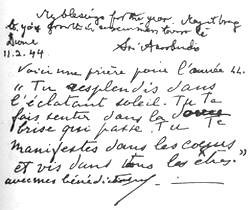 My blessings for the year. May it bring
to you growth in consciousness towards the
Divine
Sri Aurobindo
11.2.44
Voici une prière pour l'année 44.
"Tu resplendis dans
l'éclatant soleil. Tu te
fais sentir dans la
brise qui passe. Tu Te
manifestes dans les cœurs
et vis dans tous les êtres."
avec mes bénédictions